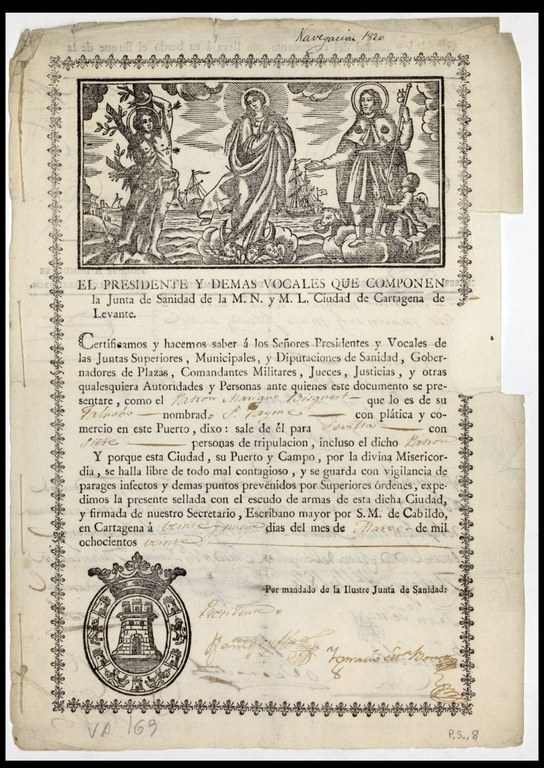 Navegacion 1820
EL PRESIDENTE Y DEMAS VOCALES QUE COMPONEN
la Junta de Sanidad de la M. N. y M. L. Ciudad de Cartagena de
Levante.
Certificamos y hacemos saber á los Señores Presidentes y Vocales de
las Juntas Superiores, Municipales, y Diputaciones de Sanidad, Gober-
nadores de Plazas, Comandantes Militares, Jueces, Justicias, y otras
qualesquiera Autoridades y Personas ante quienes este documento se pre-
sentare, como el Patron que lo es de su
nombrado Sn. con plática y co-
mercio en este Puerto, dixo: sale de él para Sevilla con
siete personas de tripulacion, incluso el dicho Patron
Y porque esta Ciudad, su Puerto y Campo, por la divina Misericor-
dia, se halla libre de todo mal contagioso, y se guarda con vigilancia de
parages infectos y demas puntos prevenidos por Superiores órdenes, expe-
dimos la presente sellada con el escudo de armas de esta dicha Ciudad,
y firmada de nuestro Secretario, Escribano mayor por S. M. de Cabildo,
en Cartagena á veinte dias del mes de Marzo de mil
ochocientos veinte
Por mandado de la Ilustre Junta de Sanidad:
Presidente
Ignacio
VA 169
P.S., 8